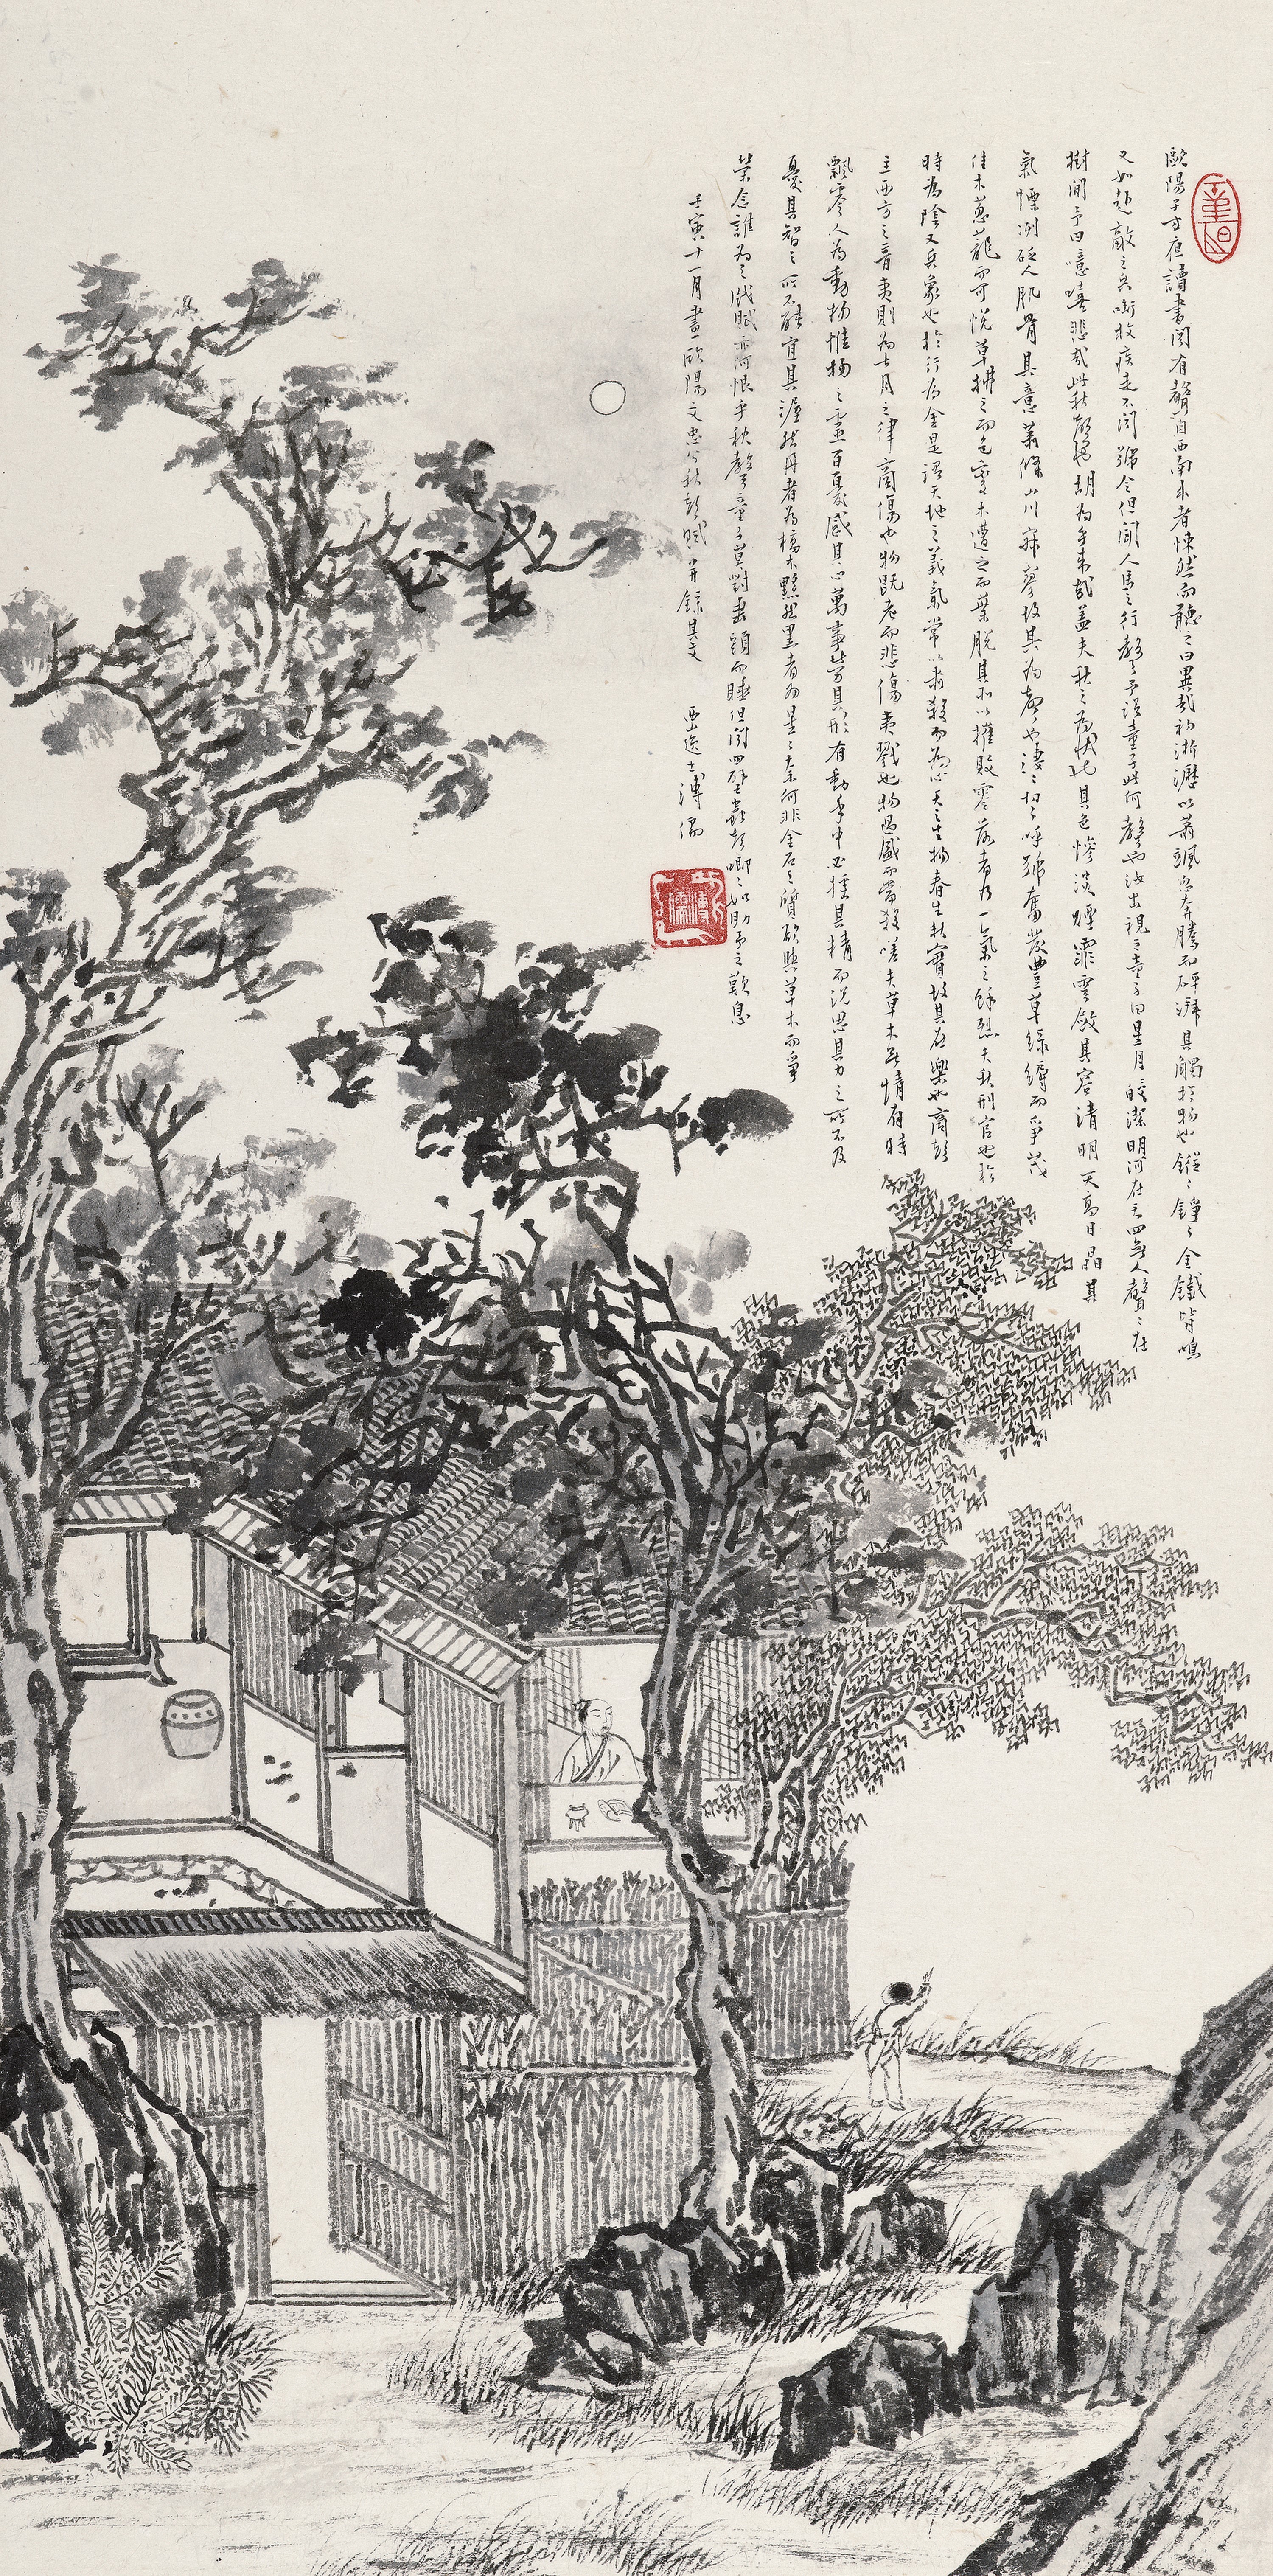 歐陽子方夜讀書聞有聲自西南來者悚然而聽之曰異哉初淅瀝以蕭颯忽奔騰而砰湃其觸於物也鏦〻錚〻金鐵皆鳴
又如赴敵之兵銜枚疾走不聞號令但聞人馬之行聲予謂童子此何聲也汝出視之童子曰星月皎潔明河在天四無人聲〻在
樹間予曰噫嘻悲哉此秋聲也胡為乎來哉蓋夫秋之為狀也其色慘淡煙霏雲斂其容清明天高日晶其
氣慄冽砭人肌骨其意蕭條山川寂寥故其為聲也淒〻切〻呼號奮發豐草綠縟而爭茂
佳木蔥蘢而可悅草拂之而色變木遭之而葉脫其所以摧敗零落者乃一氣之餘烈夫秋刑官也於
時為陰又兵象也於行為金是謂天地之義氣常以肅殺而為心天之生物春生秋實故其在樂也商聲
主西方之音夷則為七月之律商傷也物既老而悲傷夷戮也物過盛而當殺嗟夫草木無情有時
飄零人為動物惟物之靈百憂感其心萬事勞其形有動乎中必搖其精而況思其力之所不及
憂其智之所不能宜其渥然丹者為槁木黟然黑者為星〻奈何非金石之質欲與草木而爭
榮念誰為之戕賊亦何恨乎秋聲童子莫對垂頭而睡但聞四壁蟲聲唧〻如助予之歎息
壬寅十一月畫歐陽文忠公秋聲賦并錄其文 西山逸士溥儒
溥儒